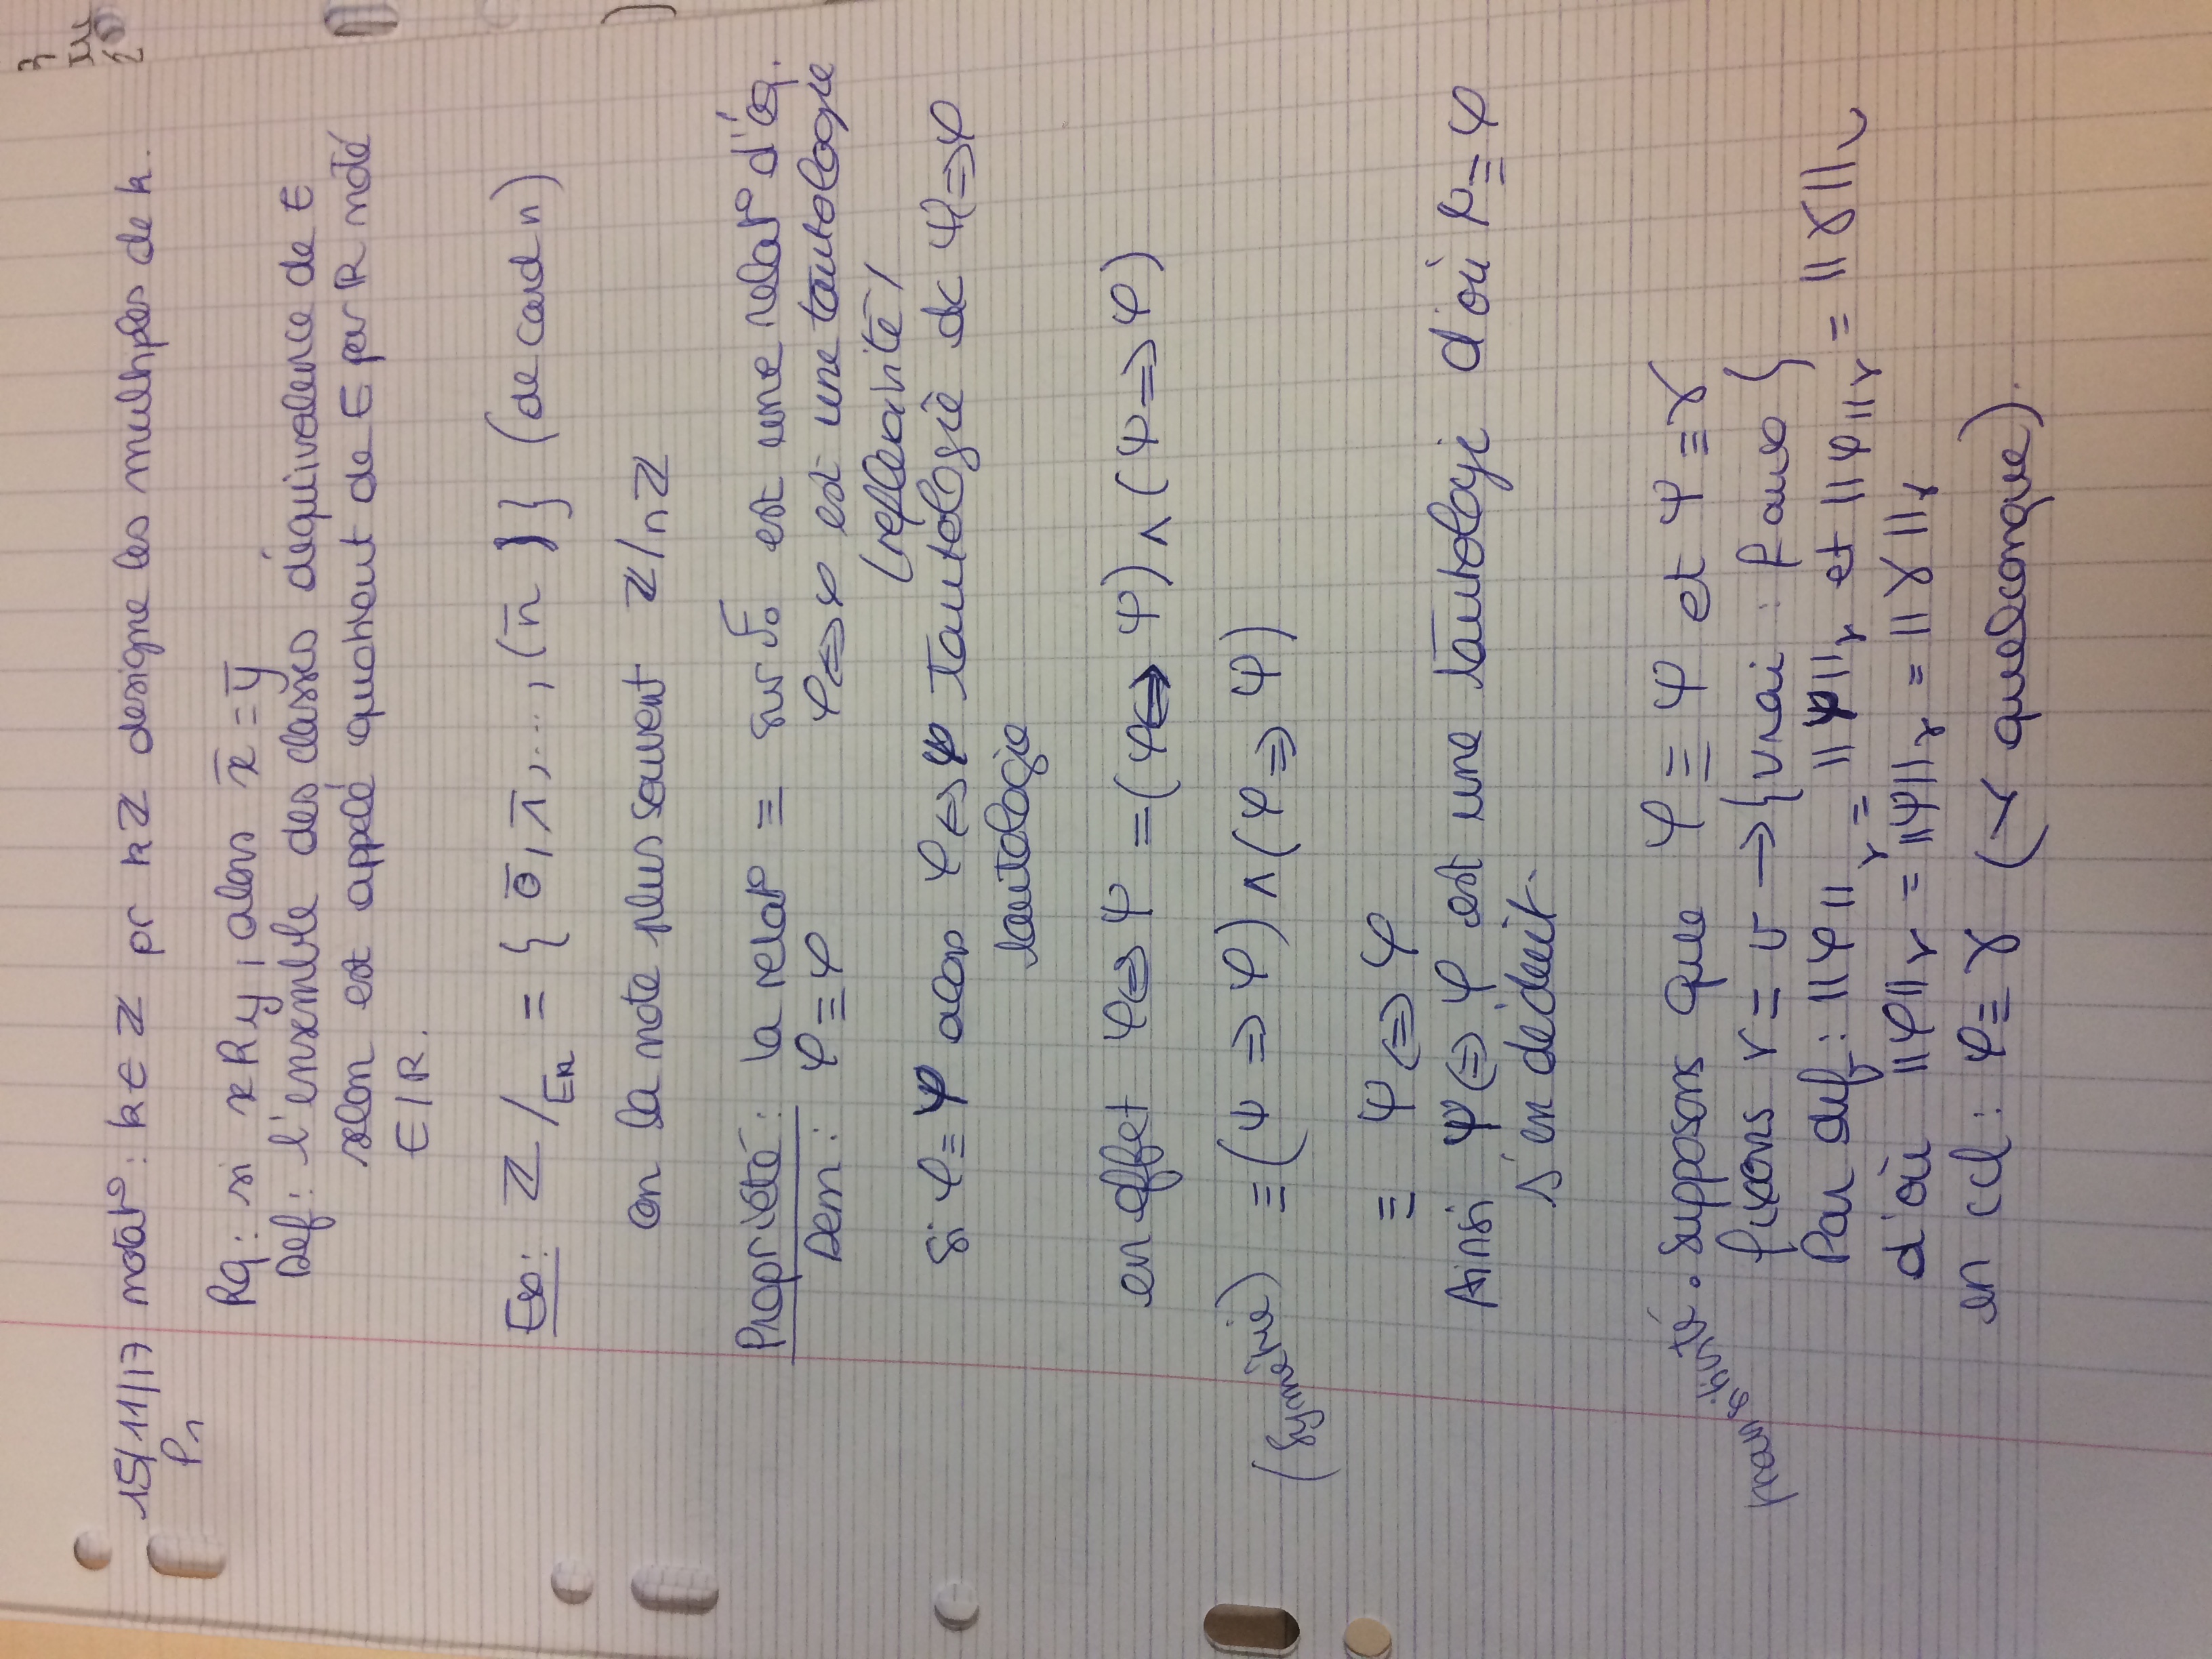 15/11/17 notat°: k ∈ ℤ pr kℤ designe les multiples de k.
P1
Rq: si x R y, alors x̄ = ȳ
Def: l'ensemble des classes d'équivalence de E
selon est appelé quotient de E par R noté
E/R.
Ex: ℤ/En = { 0̄, 1̄, ..., (n̄ )} (de card n)
on la note plus souvent ℤ/nℤ
Propriété: la relat° ≡ sur F₀ est une relat° d'éq.
Dem: φ ≡ φ φ ⇔ φ est une tautologie
(reflexivité)
Si φ ≡ ψ alors φ ⇔ ψ Tautologie dc ψ ⇒ φ
tautologie
en effet φ ⇔ ψ = (φ ⇔ ψ) ∧ (ψ ⇒ φ)
(Symétrie) ≡ (ψ ⇒ φ) ∧ (φ ⇒ ψ)
≡ ψ ⇔ φ
Ainsi ψ ⇔ φ est une tautologi d'où ψ ≡ φ
s'en déduit.
transitivité • Supposons que φ ≡ ψ et ψ ≡ γ
fixons r = v → {vrai : faux}
Par def: ||φ||r = ||ψ||r et ||ψ||r = ||γ||r
d'où ||φ||r = ||ψ||r = ||γ||r
en ccl: φ ≡ γ (r quelconque).